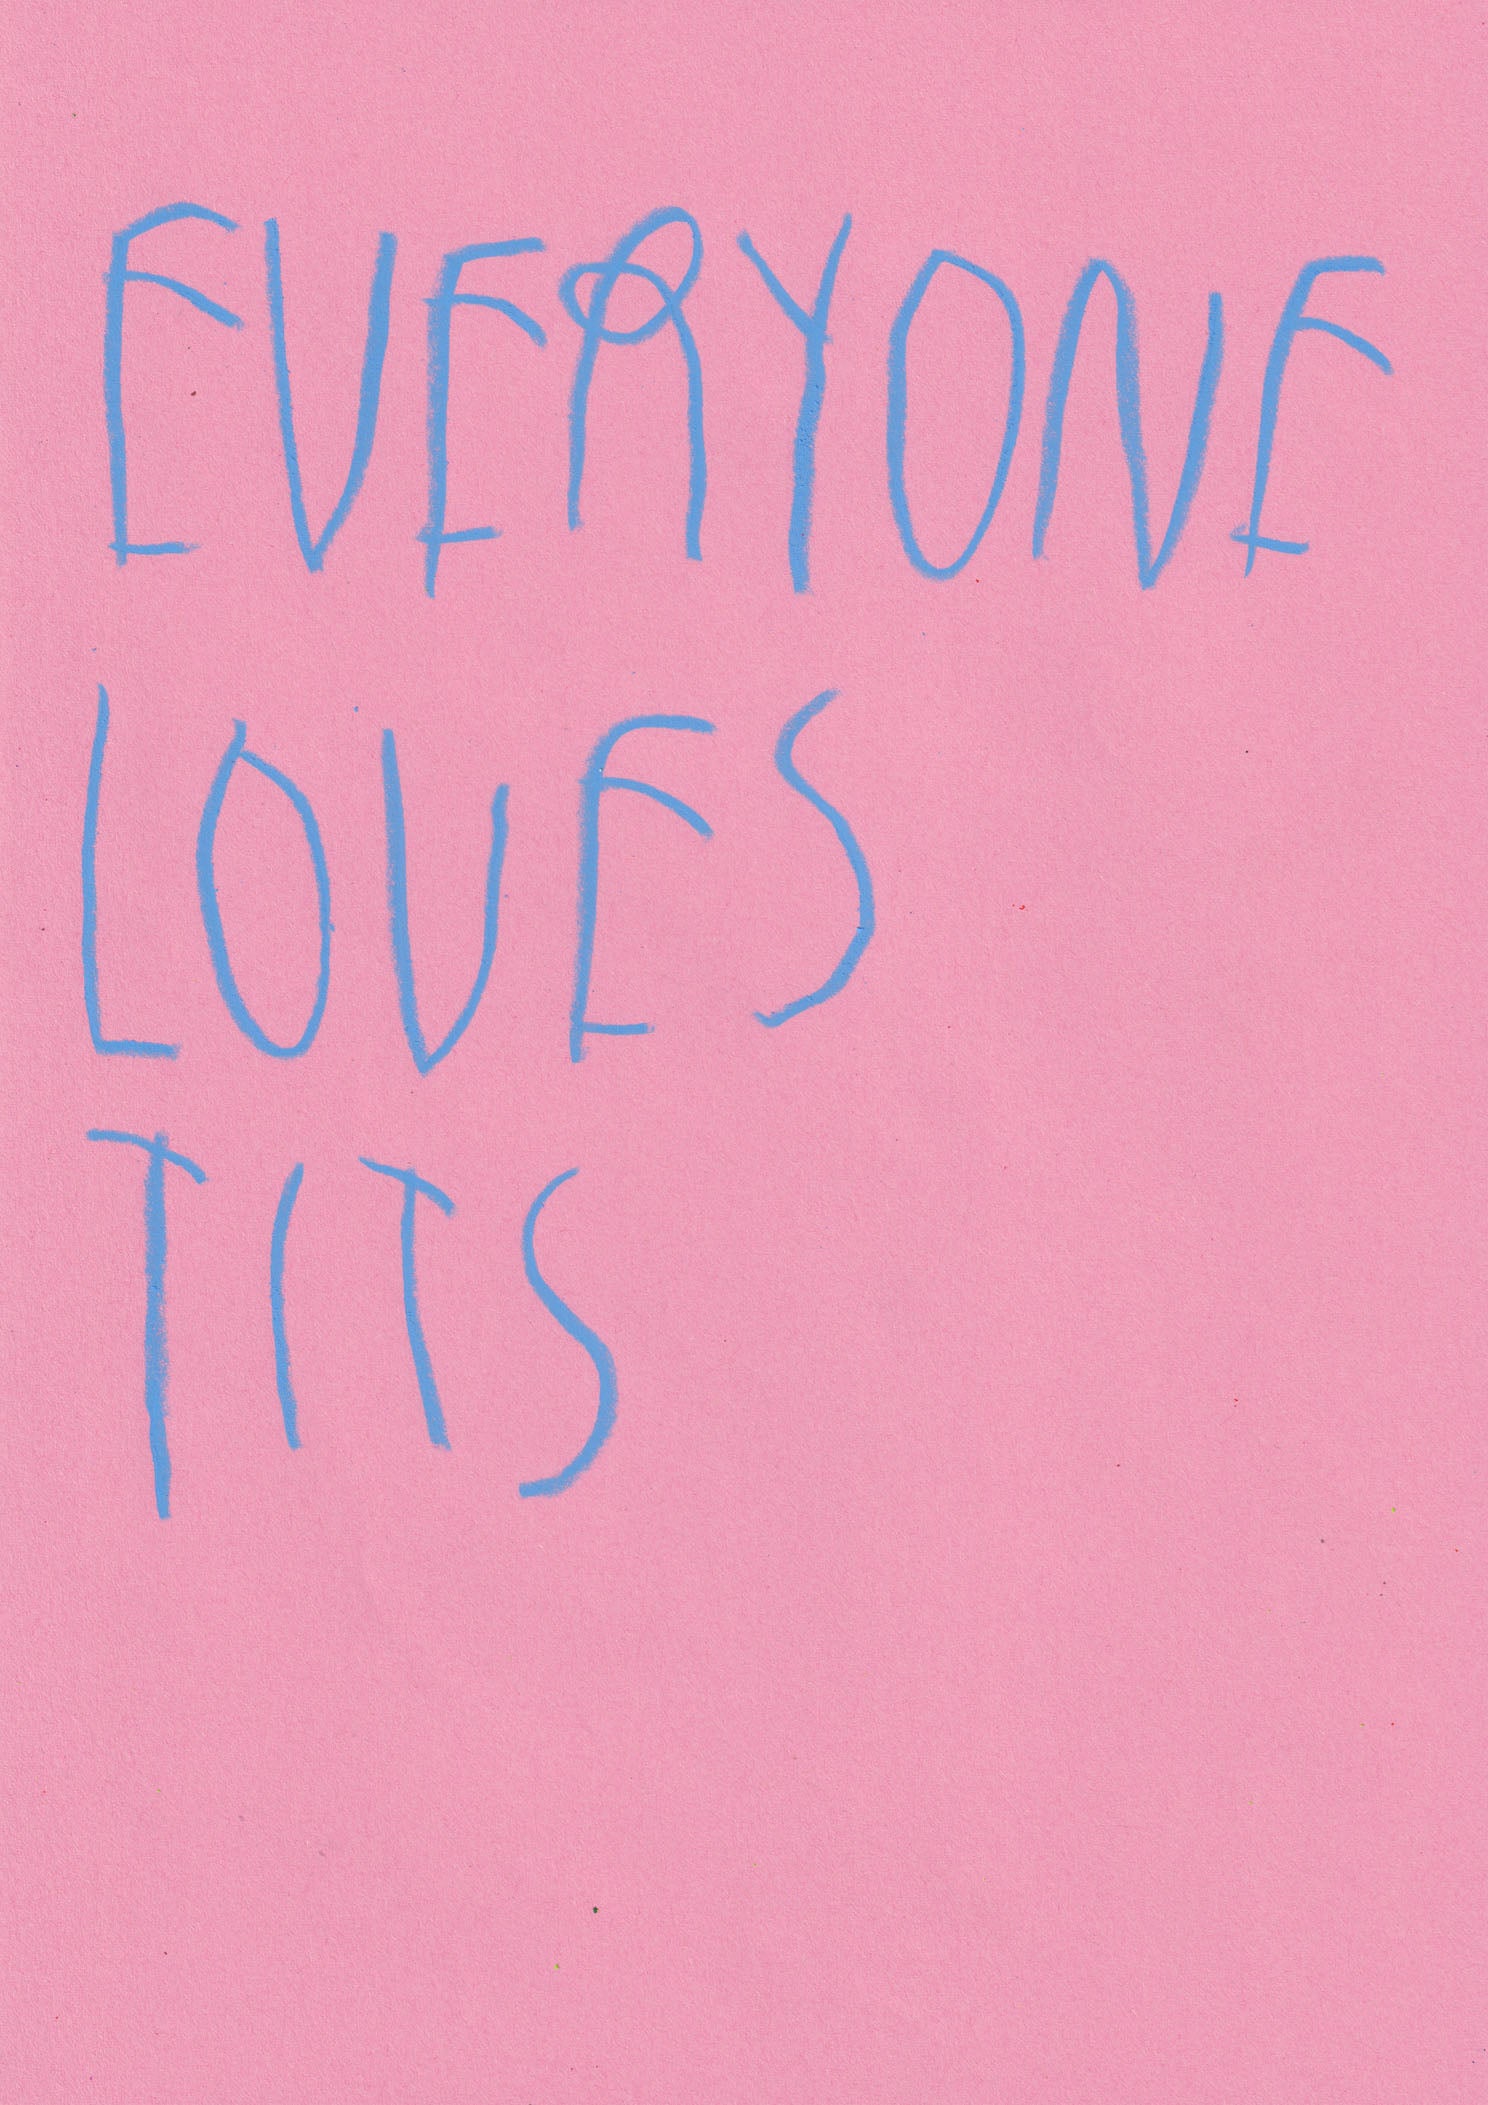 EVERYONE
LOVES
TITS